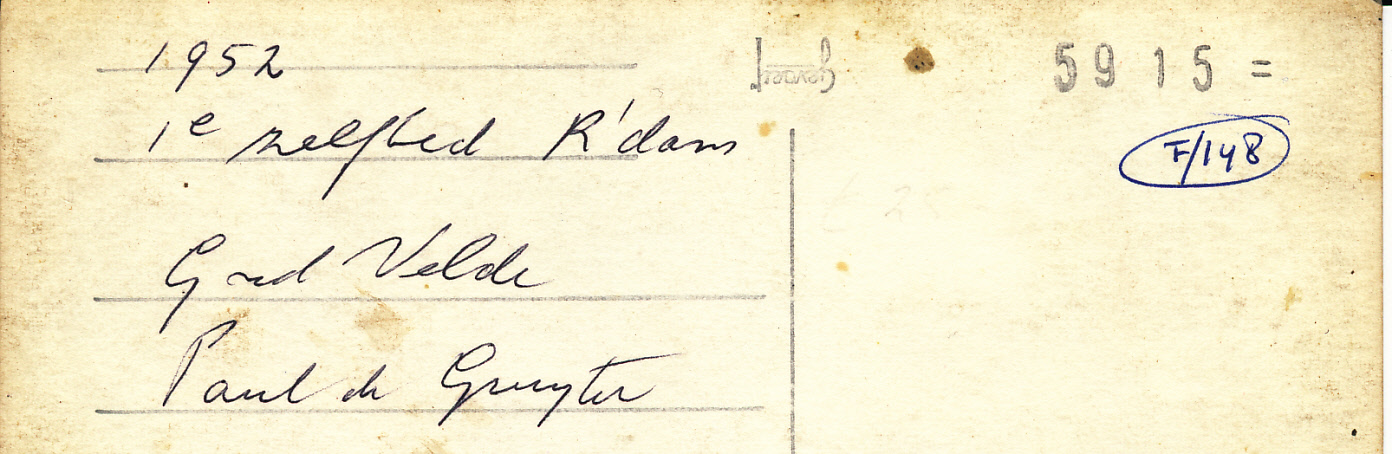 1952
1e zelfbed R'dam
Grad Velde
Paul de Gruyter
Gevaert
59 15 =
F/148